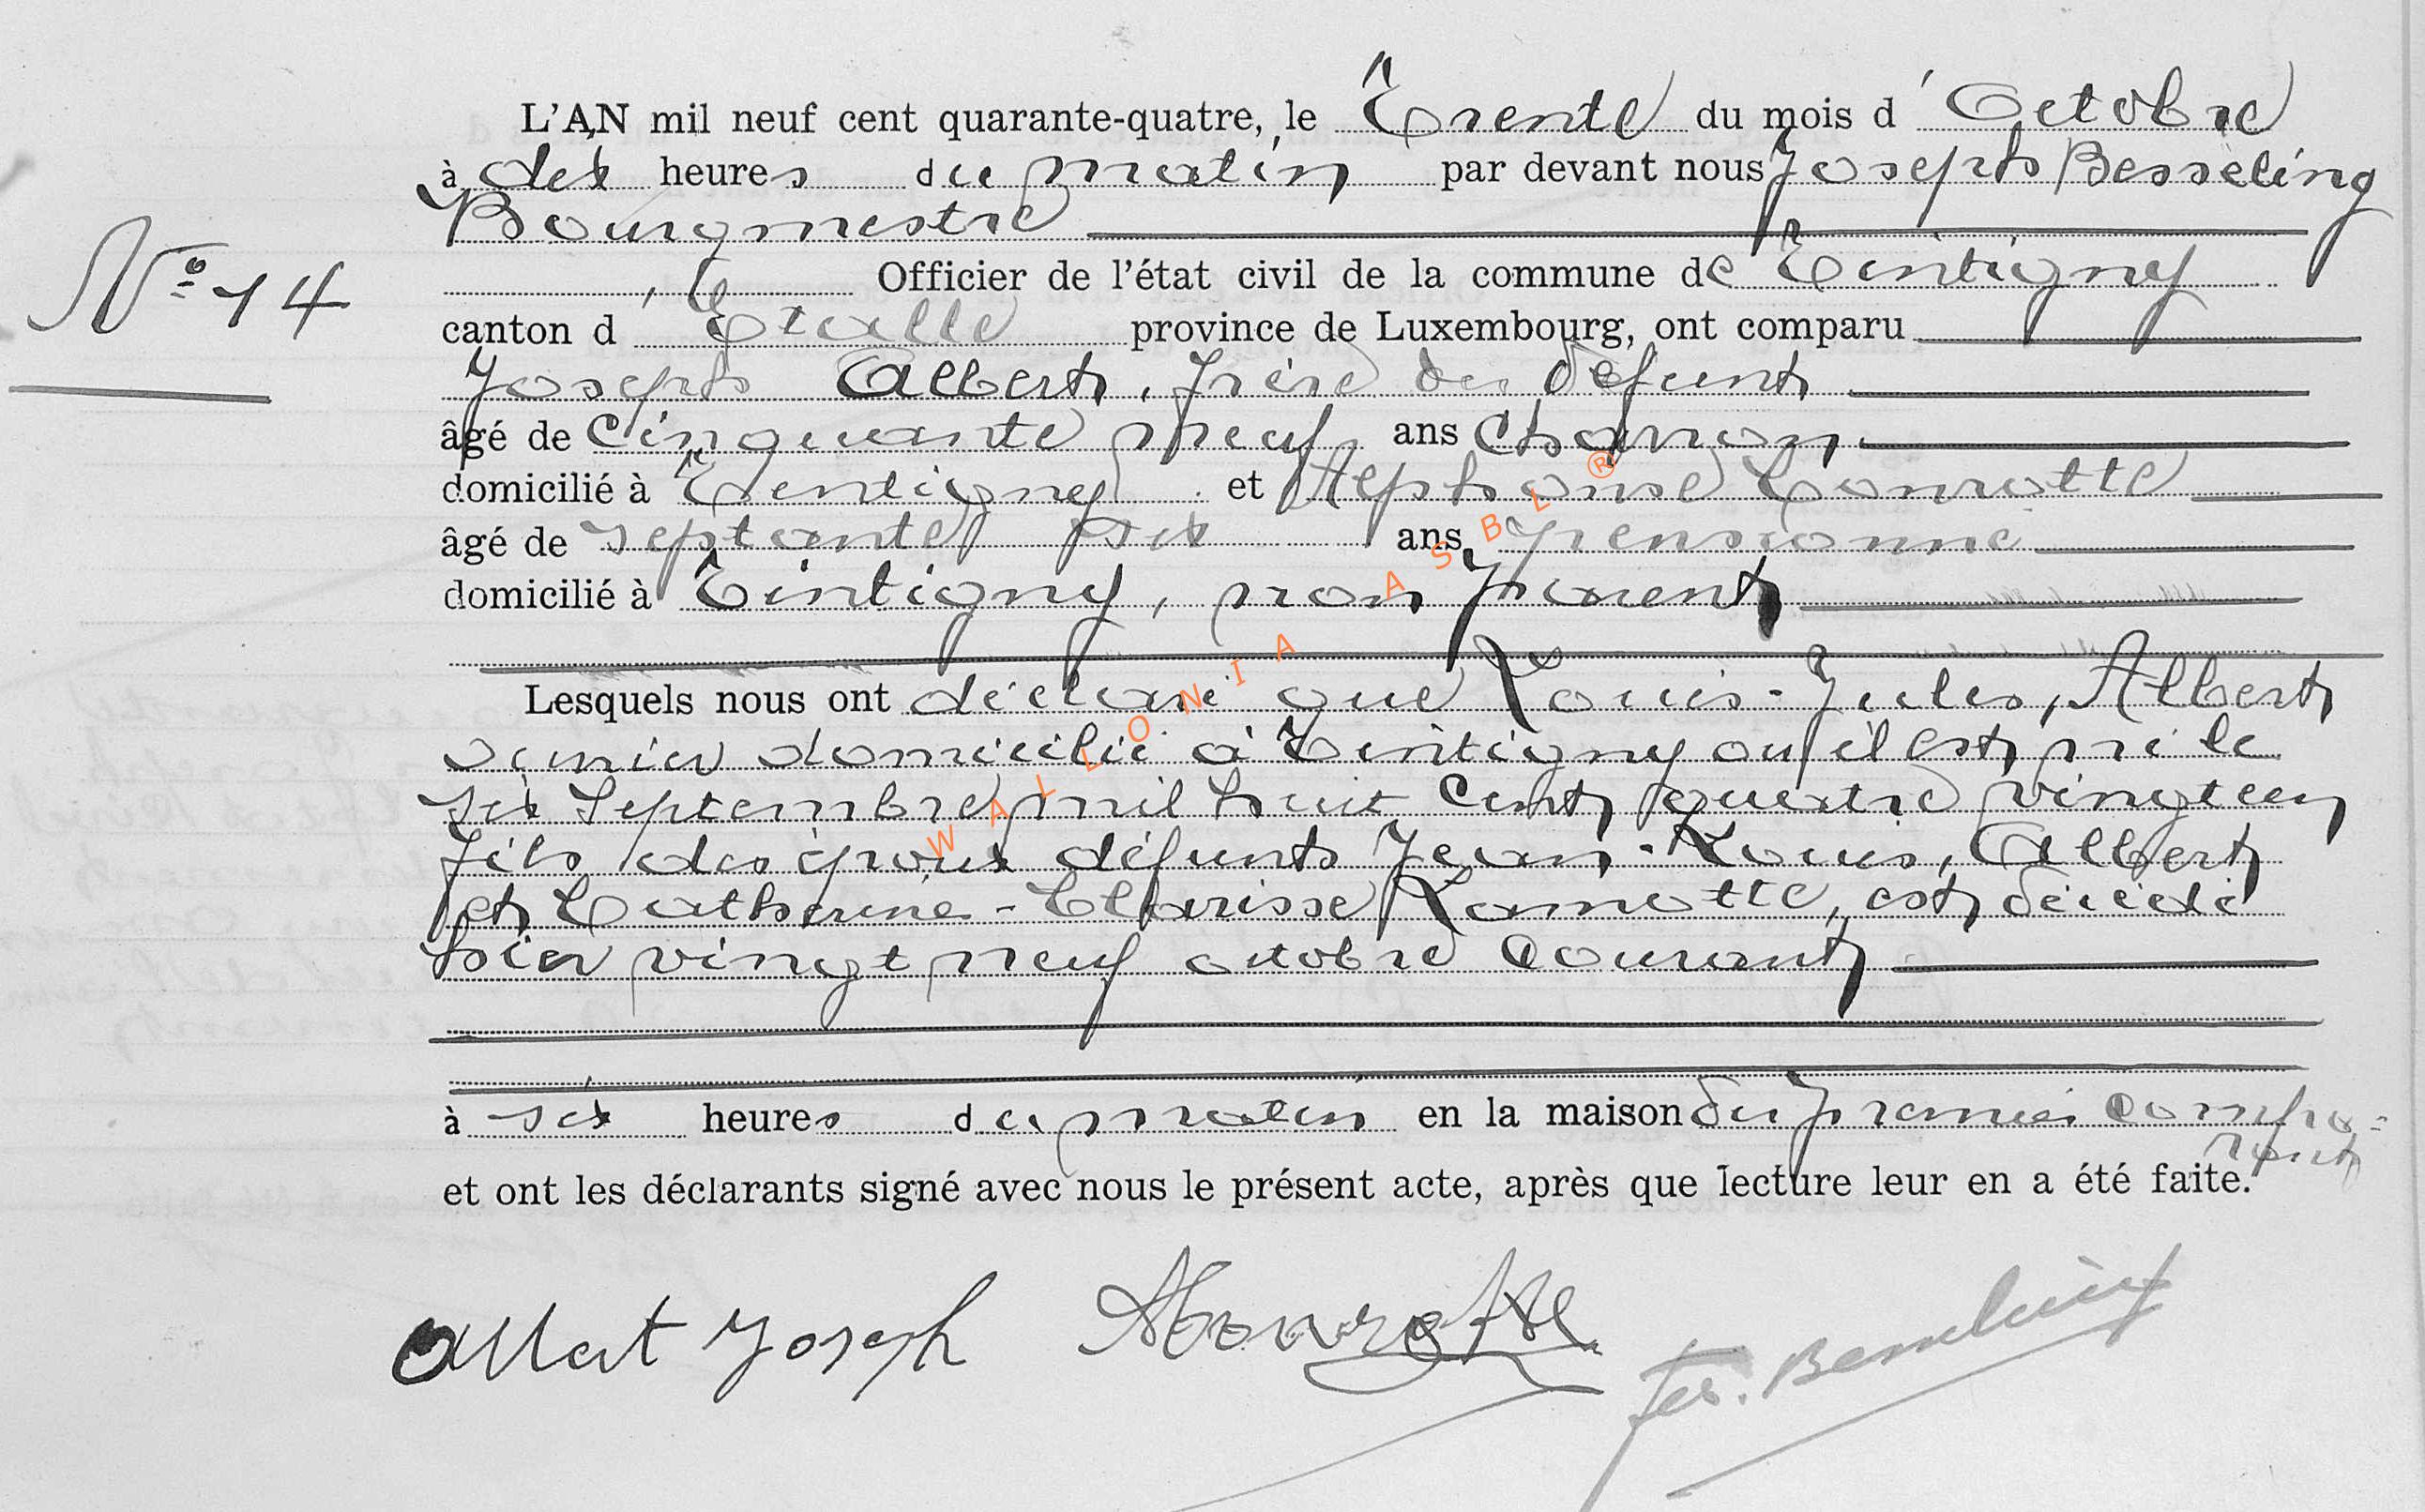 L'AN mil neuf cent quarante-quatre, le Trente du mois d'Octobre
à dix heures du matin par devant nous Joseph Besseling
Bourgmestre
N° 14
Officier de l'état civil de la commune de Tintigny
canton d'Etalle province de Luxembourg, ont comparu
Joseph Albert, frère du défunt
âgé de cinquante neuf ans
domicilié à Tintigny et Alphonse Conrotte
âgé de septante six ans pensionné
domicilié à Tintigny, non parent
Lesquels nous ont déclaré que Louis-Jules, Albert
domicilié à Tintigny où il est né le
six Septembre mil huit cent quatre vingt un
fils des époux défunts Jean-Louis, Albert
et Catherine-Clarisse Lamotte, est décédé
hier vingt neuf octobre courant
à six heures du matin en la maison du premier compa-
rant
et ont les déclarants signé avec nous le présent acte, après que lecture leur en a été faite.
Albert Joseph AConrotte Jos. Besseling
WALLONIA ASBL ®